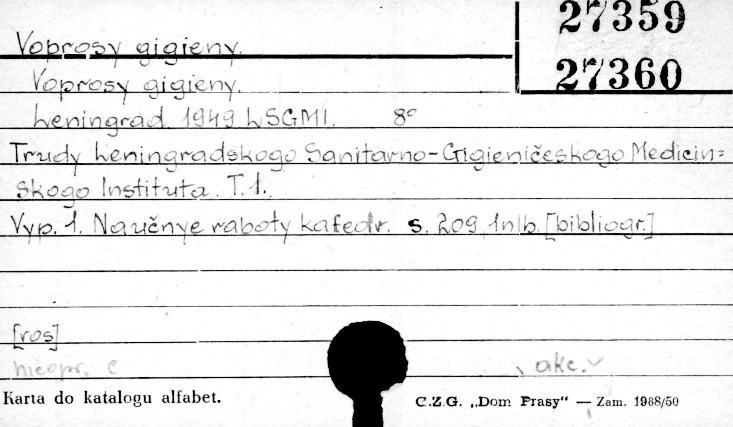 27359
Voprosy gigieny.
27360
Voprosy gigieny.
Leningrad 1949 LSGMI. 8°
Trudy Leningradskogo Sanitarno-Gigieničeskogo Medicin=
skogo Instituta. T.1.
Vyp. 1. Naučnye raboty kafedr. s. 209, 1nlb. [bibliogr.]
[ros]
nieopr. c
akc.
Karta do katalogu alfabet.
C.Z.G. „Dom Prasy“ — Zam. 1988/50